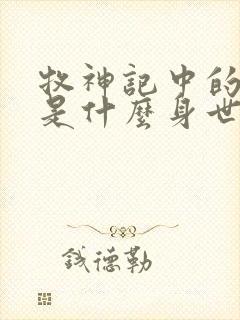 牧神記中的
是什麼身世
錢德勒